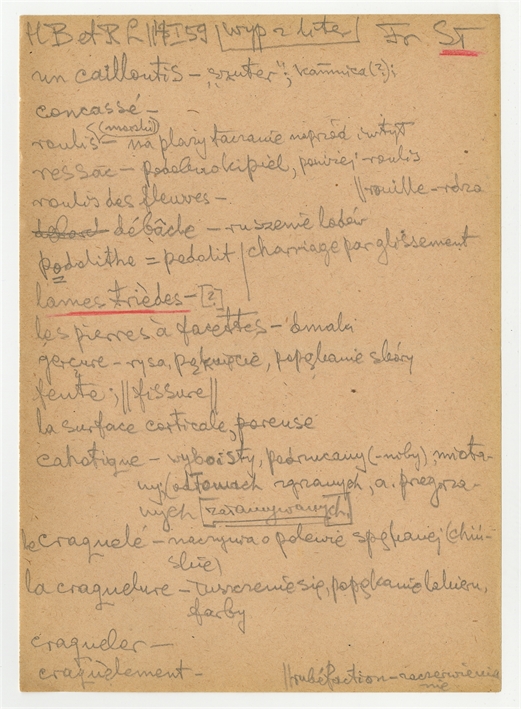 HBARL 14 I 59 |wyp z liter| Fr ST
un cailloutis – „szuter”; kamnica (?);
concassé –
roulis (morski) – na plaży taczanie naprzód i wtył
ressac – kipiel, powiej roulis
roulis des fleuves –
|| rouille – rdza
débâcle – ruszenie lodów
podolithe = podolit / charriage par glissement
lames trièdes – [?]
les pierres à facettes –
gerçure – rysa, pęknięcie, popękanie skóry
fente; || fissure ||
la surface corticale, poreuse
cahotique – wyboisty, podrzucany (-noby), miota-
ny (o odłamach zgrzanych, a. przegrza-
nych [załamywanych]
le craquelé – nazywa o polewie spękanej (chiń-
skiej)
la craquelure – łuszczenie się, popękanie lakieru,
farby
craqueler –
craquèlement –
|| rubéfaction – zaczerwienie
nie